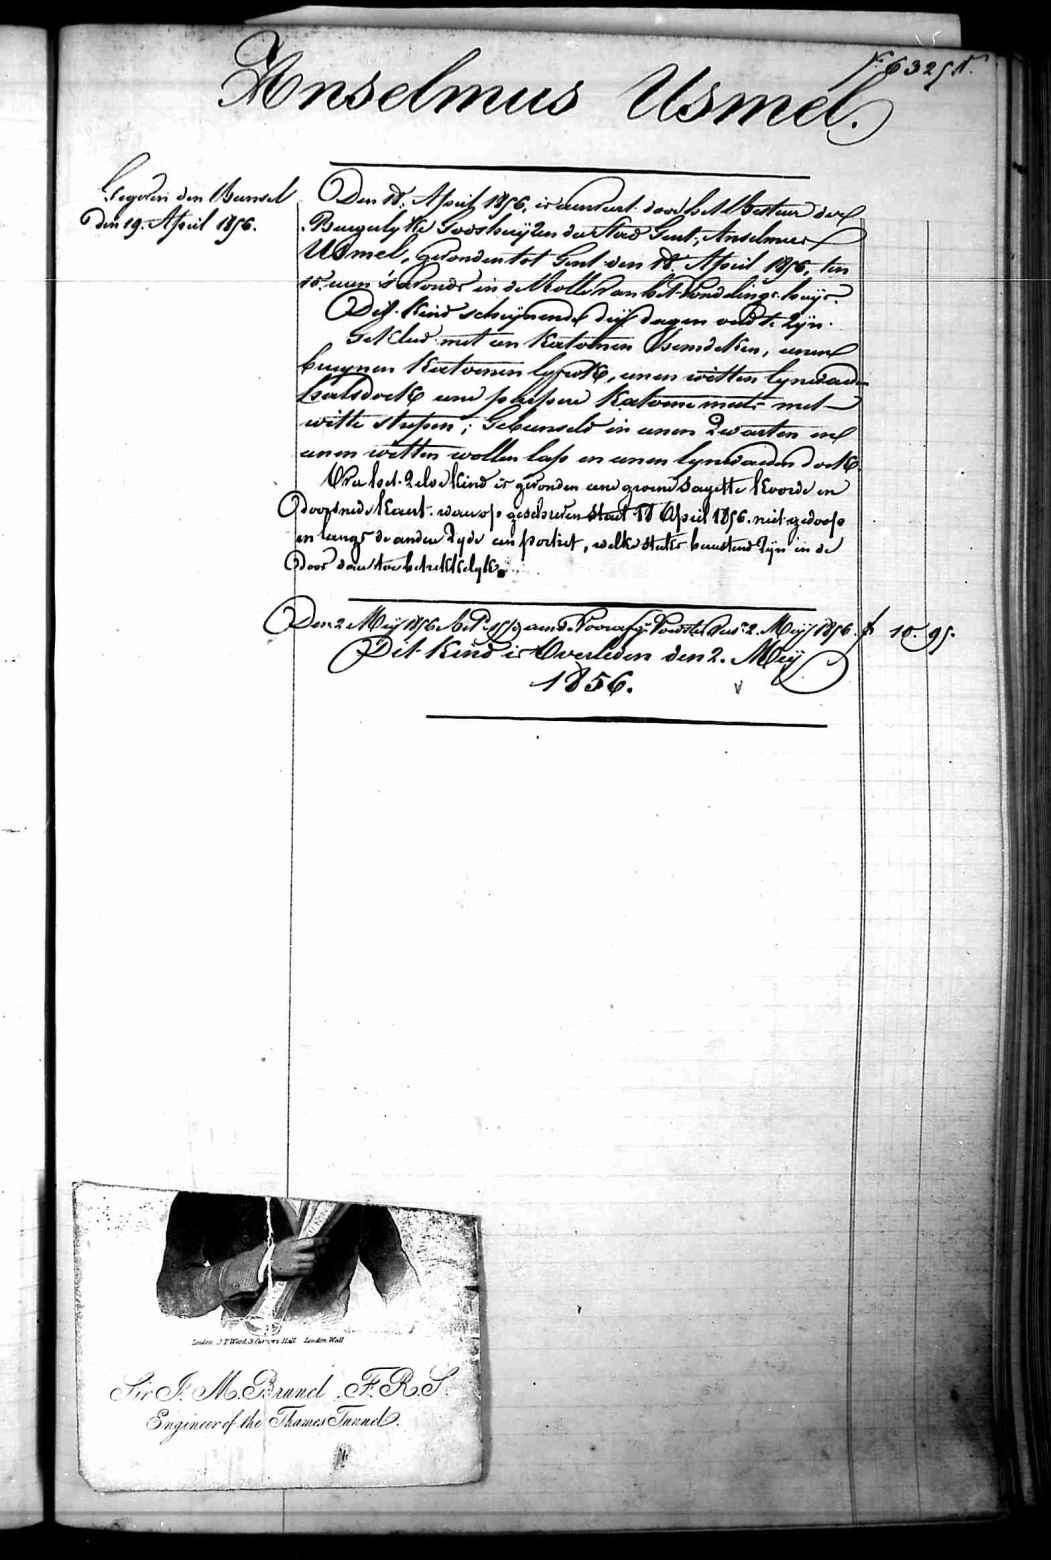 Anselmus Usmel.
Gegeven den Bunsel
den 19. April 1856.
Den 18. April 1856, is aenveert door het Bestuer der
Burgerlyke Godshuyzen der Stad Gent, Anselmus
Usmel, gevonden tot Gent den 18. April 1856, ten
10. uren 's avonds in de Rolle van het Vondelings-huys.
Dit Kind scheynende dry dagen oud te zyn.
Gekleed met een Katoenen hemdeken, eenen
bruynen Katoenen lyfrok, eenen witten lynwaeden
halsdoek eene purpere Katoene muts met
witte strepen; Gebunseld in eenen zwarten en
eenen witten wollen lap en eenen lynwaeden doek.
By het zelve Kind is gevonden eene groene Sayette Koorde en
doorsnede Kaart. waerop geschreven Staet 18 April 1856. niet gedoopt
en langs de andere zyde een portret, welke stuks berustend zyn in de
Doos daer toe betrekkelyk.
Den 2 Mey 1856 bet. aen de Voorafg. Voedster tot 2. Mey 1856. f 10. 95.
Dit Kind is Overleden den 2. Mey
1856.
London J T Wood 3 Curriers Hall London Wall
Sir I. M. Brunel F. R. S.
Engineer of the Thames Tunnel.